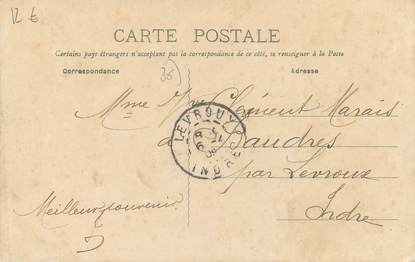 12 €
CARTE POSTALE
Certains pays étrangers n'acceptant pas la correspondance de ce côté, se renseigner à la Poste
Correspondance
Adresse
Mme Clément Marais
a Baudres
par Levroux
Indre
LEVROUX
INDRE
Meilleur souvenir